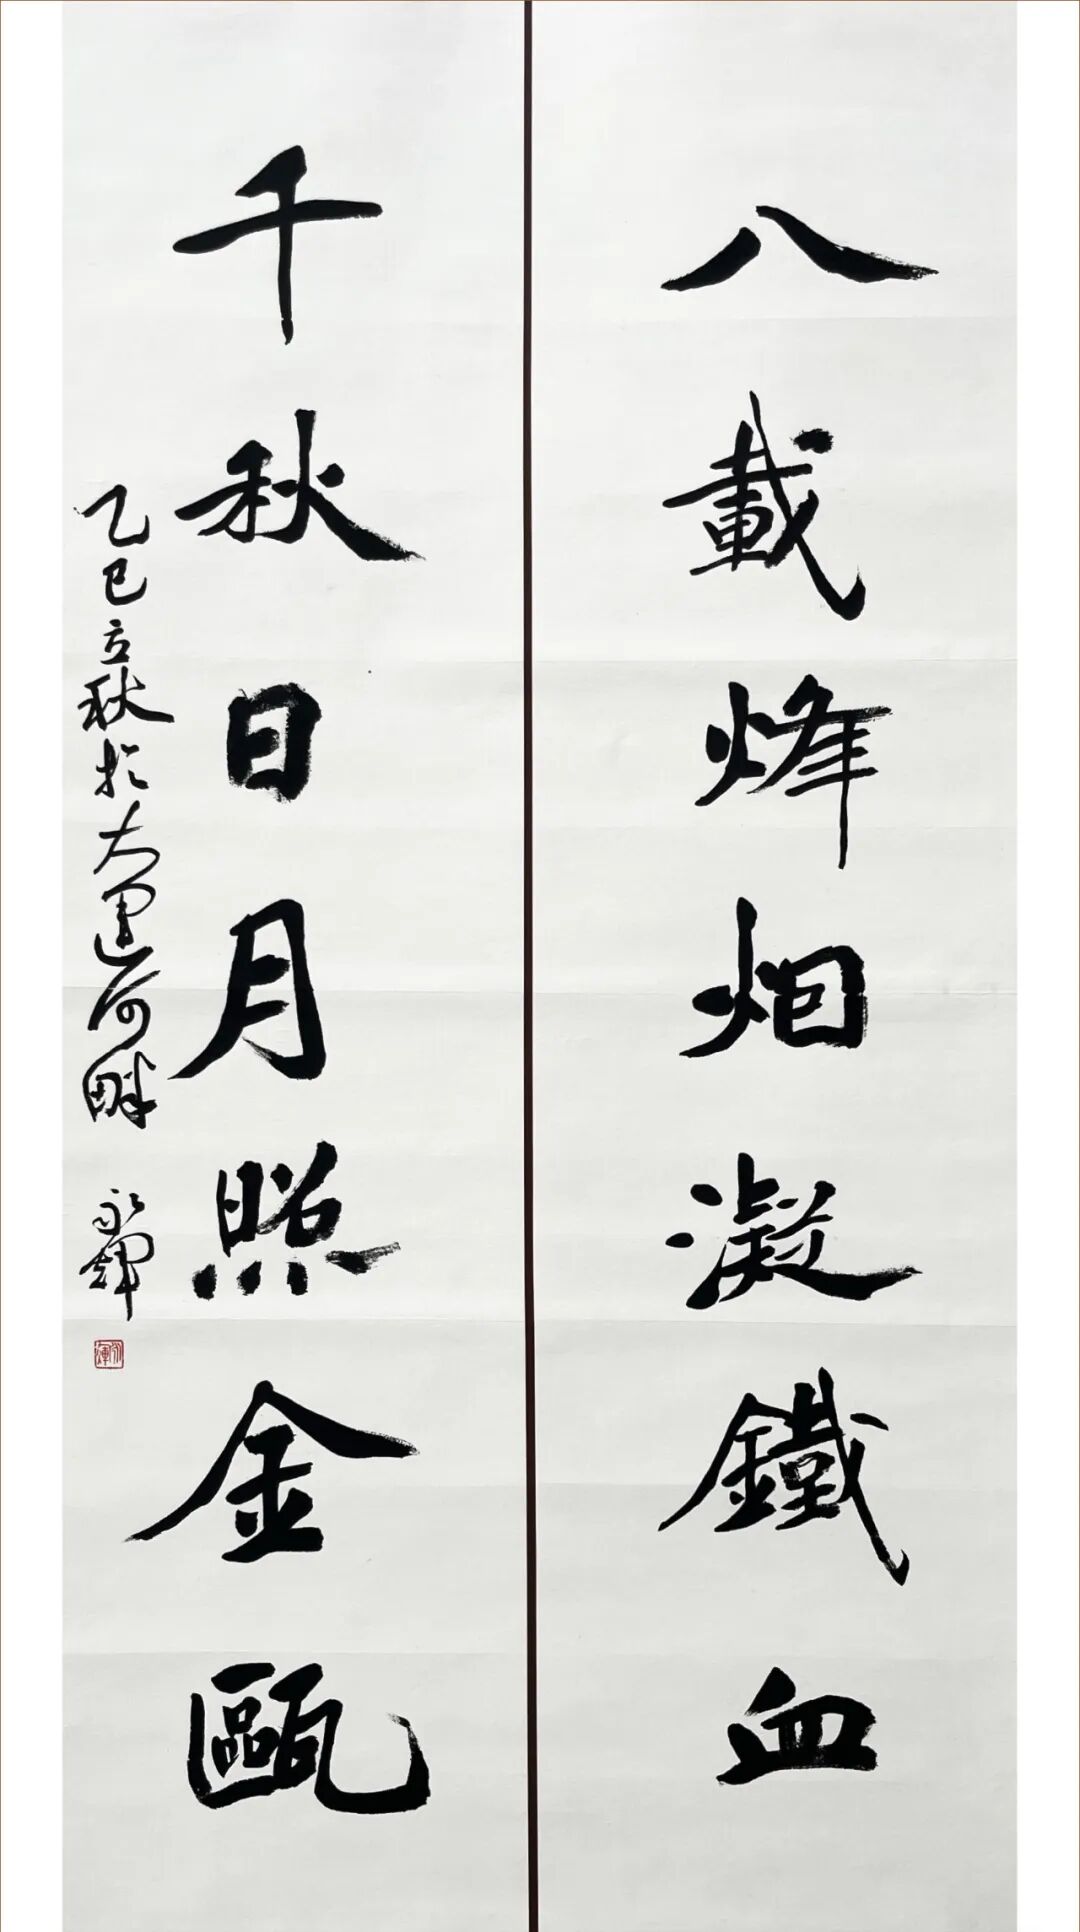 八載烽烟凝鐵血
千秋日月照金甌
乙巳立秋於大運河畔 永輝